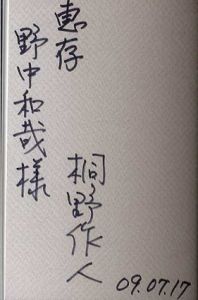 恵存
野中和哉様
桐野作人
09.07.17